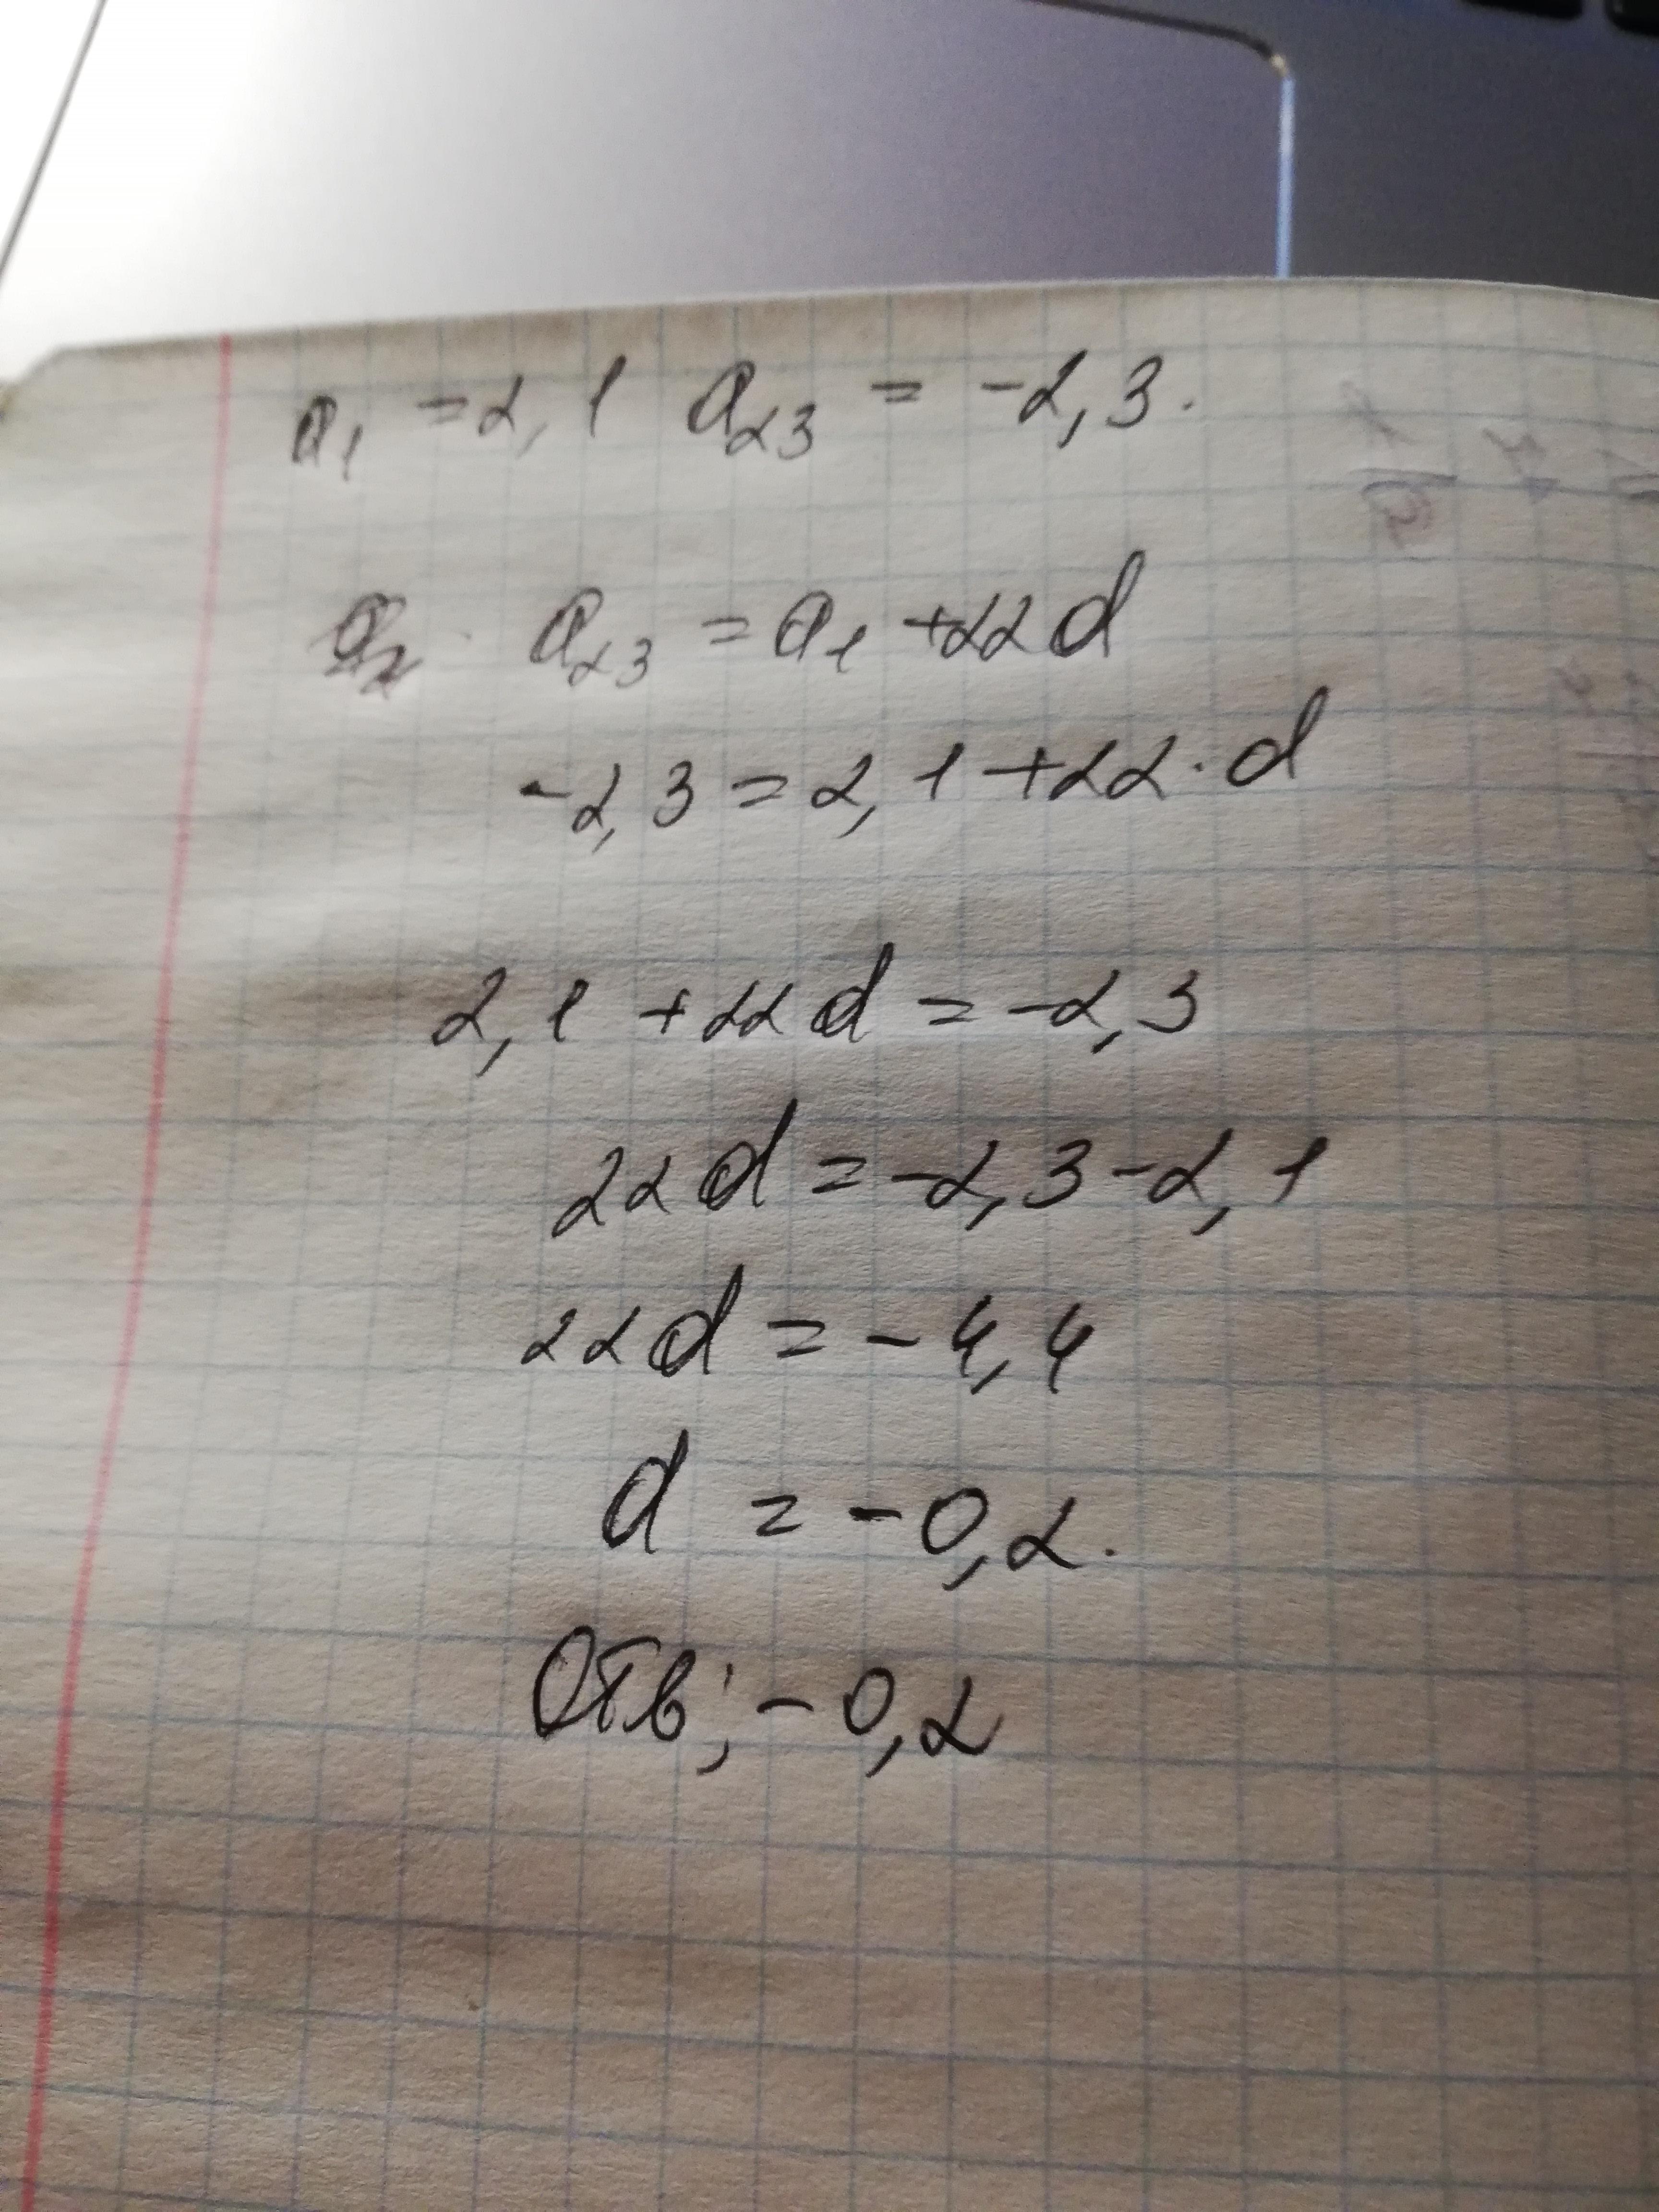 a₁ = 2,1 a₂₃ = -2,3.
a₂₃ = a₁ + 22d
-2,3 = 2,1 + 22·d
2,1 + 22d = -2,3
22d = -2,3 - 2,1
22d = -4,4
d = -0,2.
Отв; -0,2